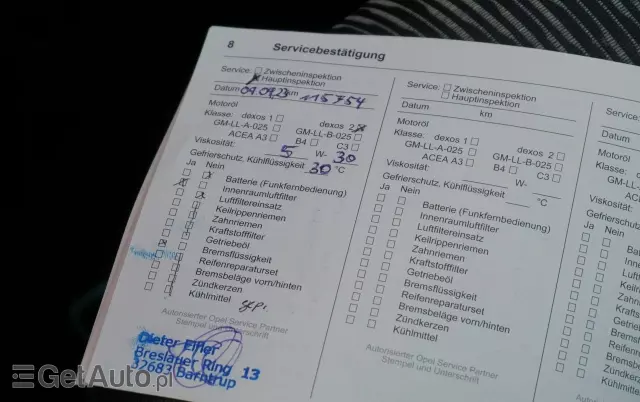 8 Servicebestätigung
Service: Zwischeninspektion
Hauptinspektion
Datum km 115754
Motoröl
Klasse: dexos 1 dexos 2
GM-LL-A-025 GM-LL-B-025
ACEA A3 B4 C3
Viskosität: 5 W- 30
Gefrierschutz, Kühlflüssigkeit 30 °C
Ja Nein
Batterie (Funkfernbedienung)
Innenraumluftfilter
Luftfiltereinsatz
Keilrippenriemen
Zahnriemen
Kraftstofffilter
Getriebeöl
Bremsflüssigkeit
Reifenreparaturset
Bremsbeläge vorn/hinten
Zündkerzen
Kühlmittel
Autorisierter Opel Service Partner
Stempel und Unterschrift
Dieter Eifler
Breslauer Ring 13
32683 Barntrup
Service: Zwischeninspektion
Hauptinspektion
Datum km
Motoröl
Klasse: dexos 1 dexos 2
GM-LL-A-025 GM-LL-B-025
ACEA A3 B4 C3
Viskosität: W-
Gefrierschutz, Kühlflüssigkeit °C
Ja Nein
Batterie (Funkfernbedienung)
Innenraumluftfilter
Luftfiltereinsatz
Keilrippenriemen
Zahnriemen
Kraftstofffilter
Getriebeöl
Bremsflüssigkeit
Reifenreparaturset
Bremsbeläge vorn/hinten
Zündkerzen
Kühlmittel
Autorisierter Opel Service Partner
Stempel und Unterschrift
Service:
Datum
Motoröl
Klasse: dexos
GM-LL-A-025
ACEA A3
Viskosität:
Gefrierschutz,
Ja Nein
GetAuto.pl